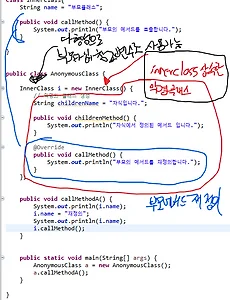 class InnerClass{
String name = "부모클래스";
public void callMethod() {
System.out.println("부모의 메서드를 호출합니다.");
}
}
public class AnonymousClass {
innerclass 상속
InnerClass i = new InnerClass() {
익명클래스
String childrenName = "자식입니다.";
public void childrenMethod() {
System.out.println("자식에서 정의된 메서드 입니다.");
}
@Override
public void callMethod() {
System.out.println("부모의 메서드를 재정의합니다.");
}
}
부모메서드 재정의
public void callMethodA() {
System.out.println(i.name);
i.name = "재정의";
System.out.println(i.name);
i.callMethod();
}
public static void main(String[] args) {
AnonymousClass a = new AnonymousClass();
a.callMethodA();
}
}